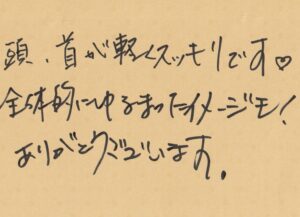 頭、首が軽くスッキリです♡
全体的にゆるまったイメージも!
ありがとうございます。